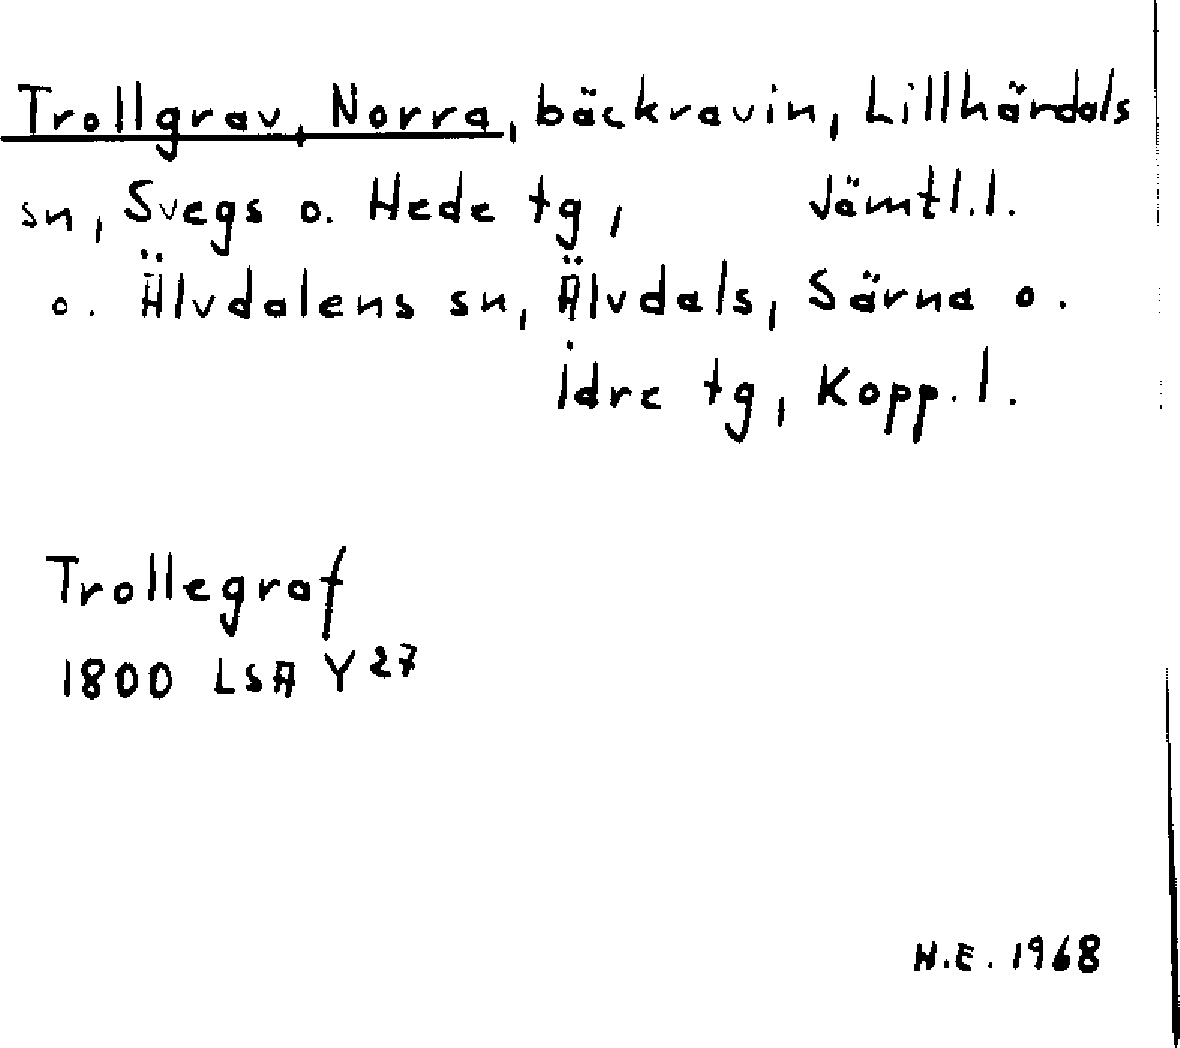 Trollgrav, Norra, bäckravin, Lillhärdals
sn, Svegs o. Hede tg, Jämtl.l.
o. Älvdalens sn, Älvdals, Särna o.
Idre tg, Kopp.l.
Trollegraf
1800 LSA Y 27
H.E. 1968